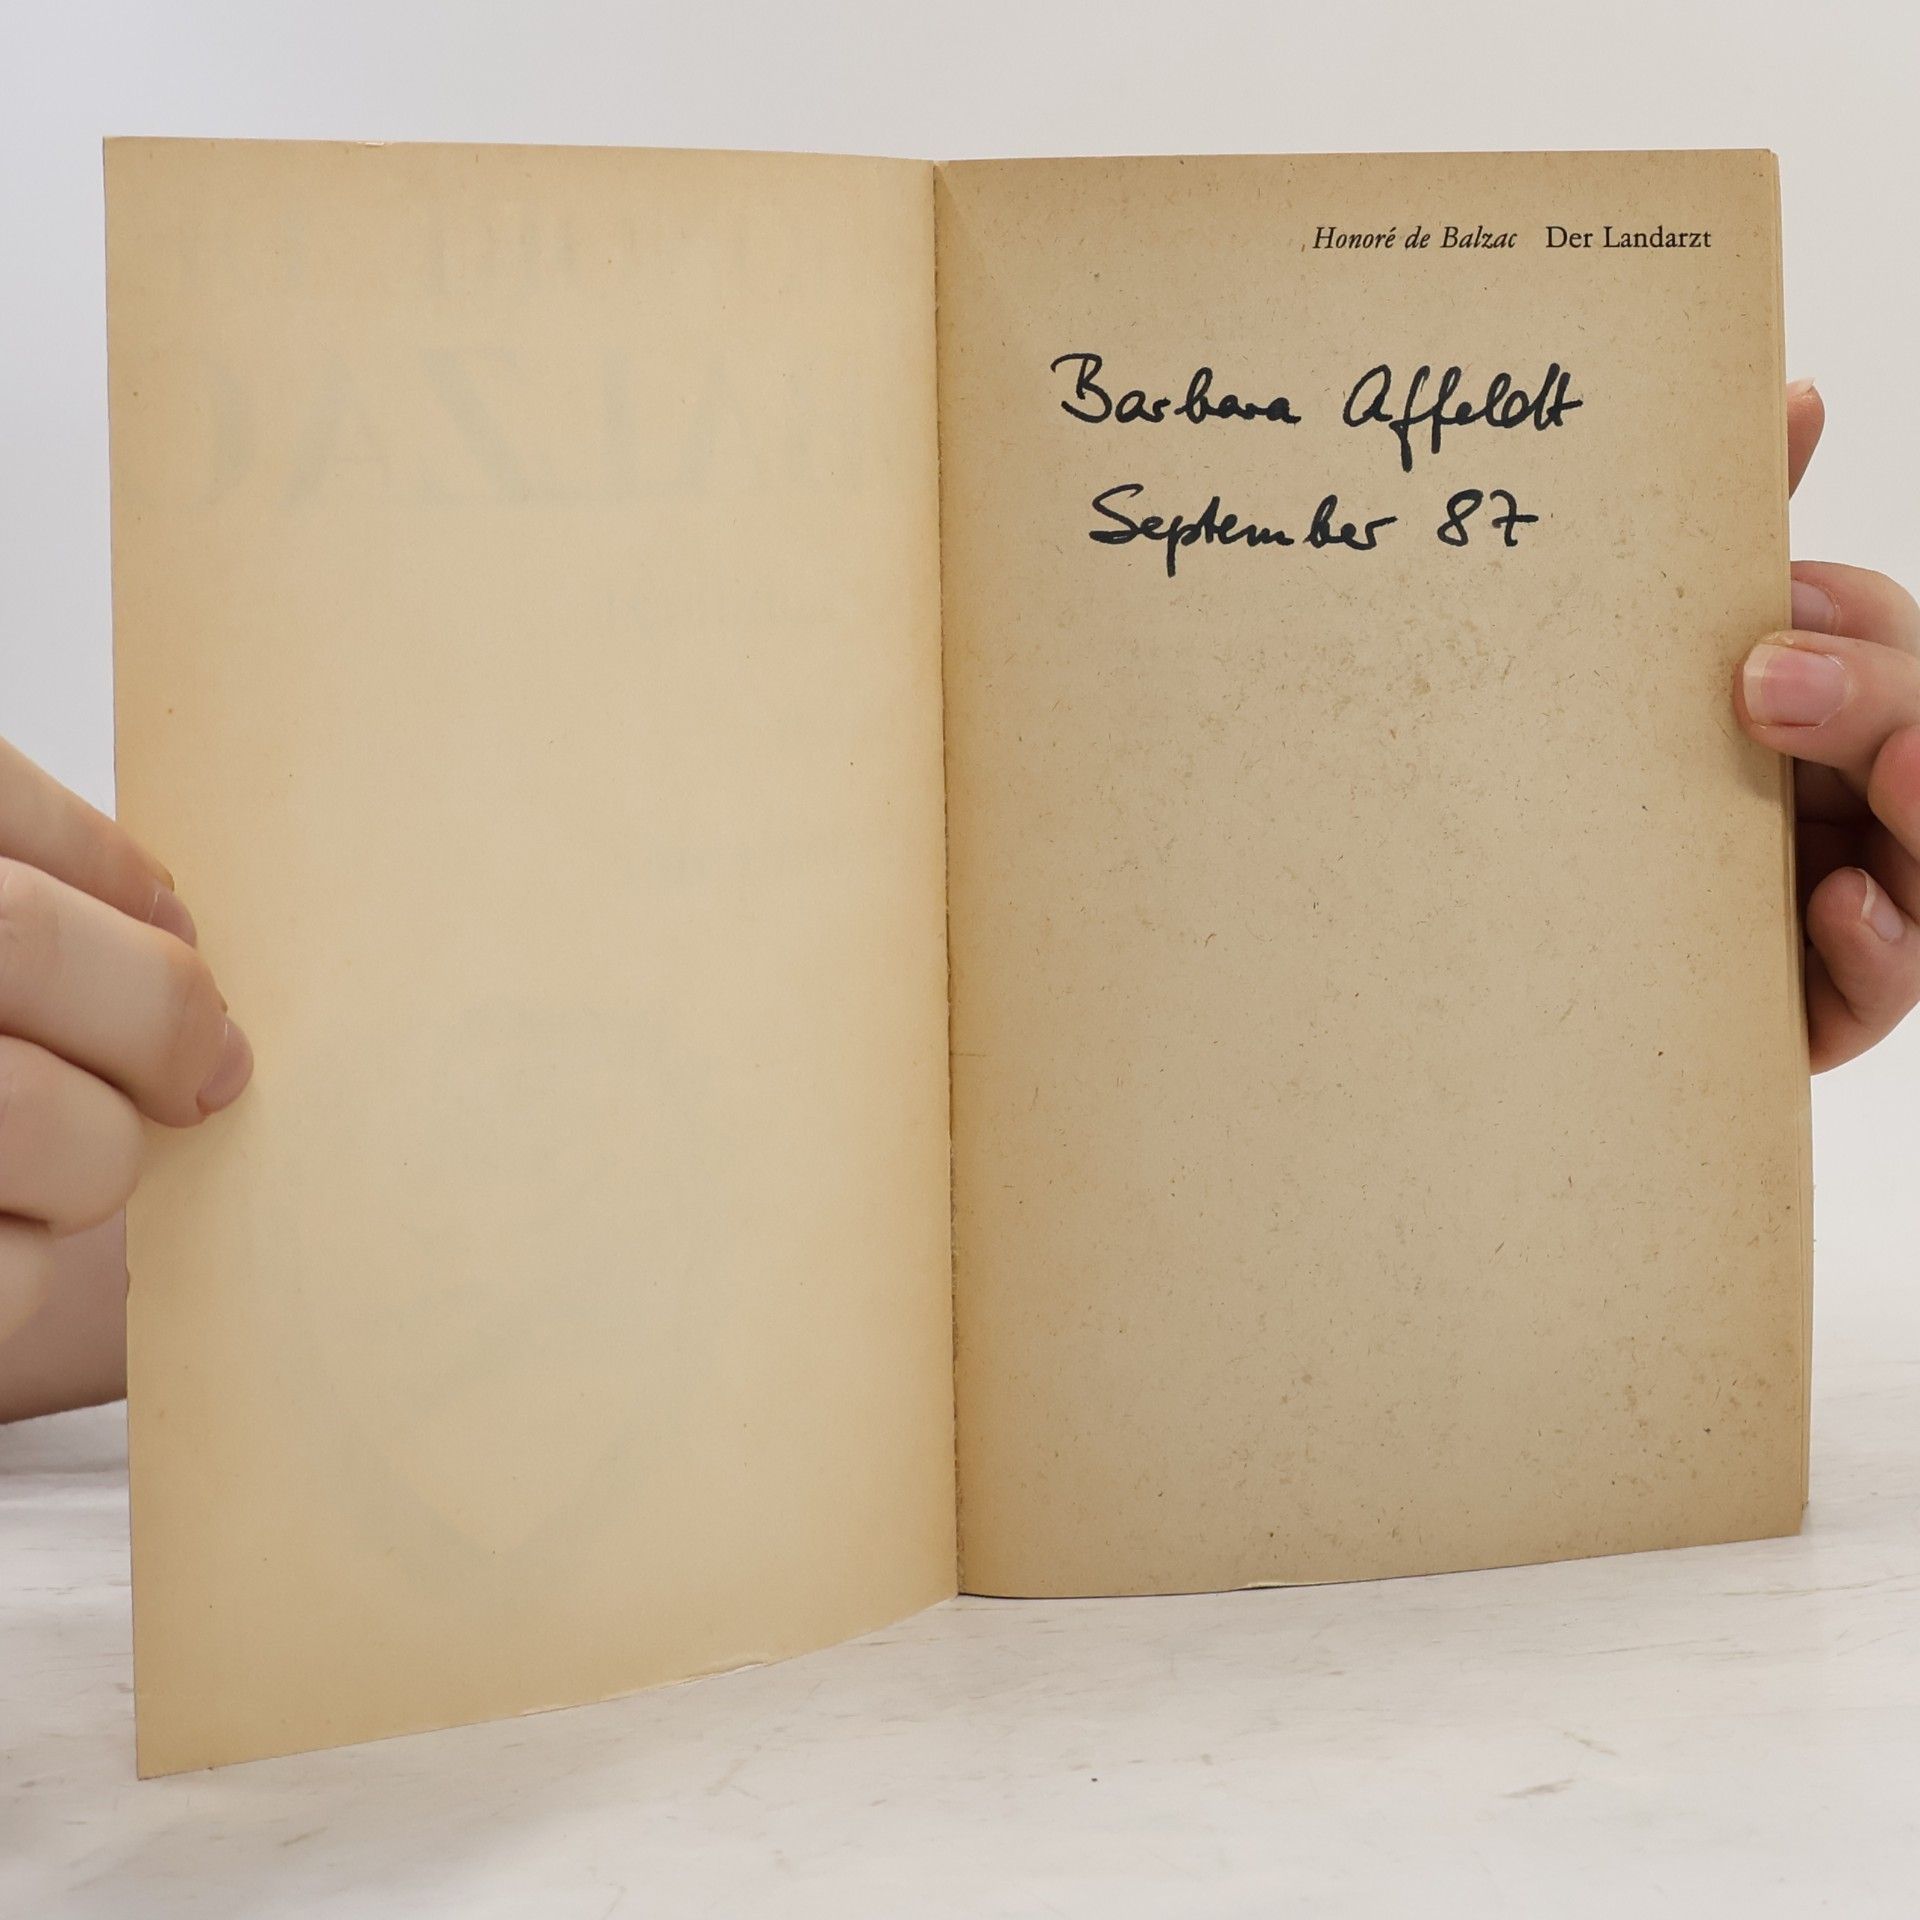 Honoré de Balzac Der Landarzt
Barbara Affeldt
September 87